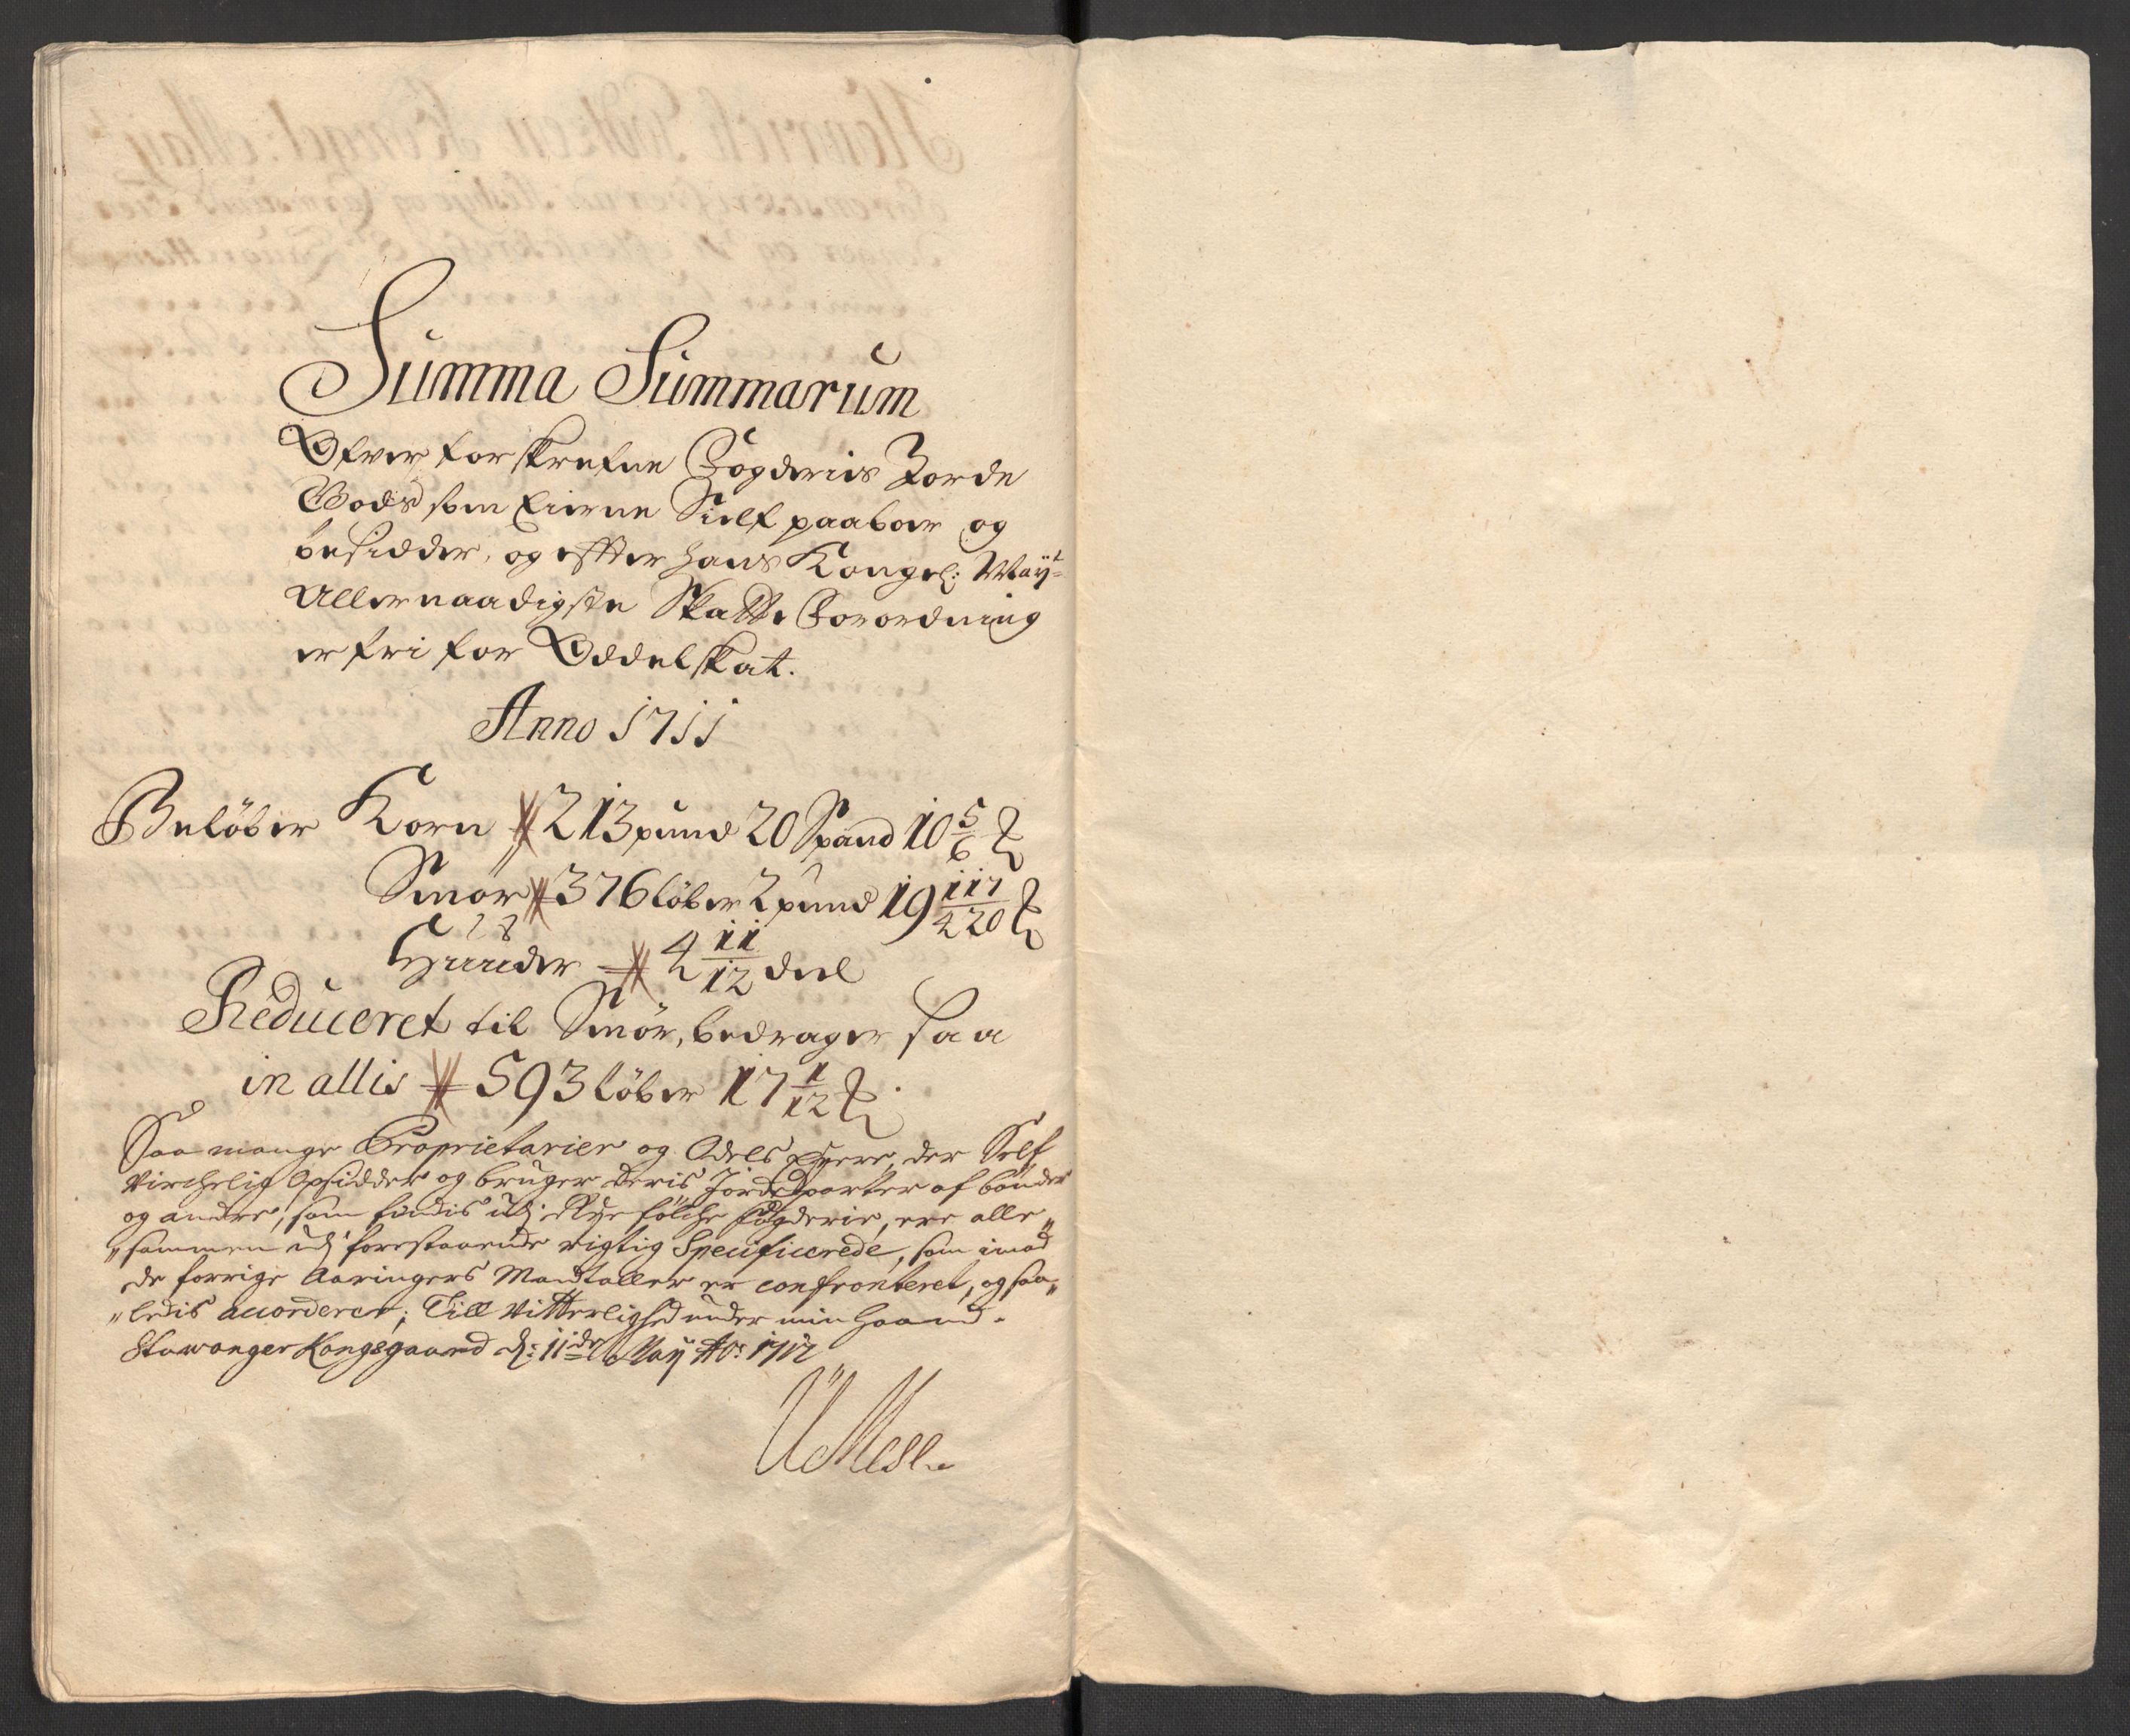 Summa Summarum
Ofver forskrefne Fogderies Jorde
Gods som Eierne Sielf paaboer og
besidder, og effter hans Kongel: May:t
Allernaadigste Skatte Forordning
er fri for Oddelskat.
Anno 1711
Beløber Korn 213 pund 20 Spand 10 5/6 ℔
Smør 376 løber 2 pund 19 117/420 ℔
Huuder 4 11/12 deel
Reduceret til Smør, bedrager saa
in allis 593 løber 17 1/12 ℔.
Saa mange Proprietarier og Odels Eyere, der Self
virchelig besidder og bruger deris Jordeparter af bønder
og andre, som findis udj Ryefølche fogderie, ere alle„
„sammen udj forestaaende rigtig Specificerede, som imod
de forrige Aaringers Mandtaller er confronteret, og saa„
„ledis accorderer; Till Vitterlighed under min Haand.
Stawanger Kongsgaard d: 11de May Ao: 1712